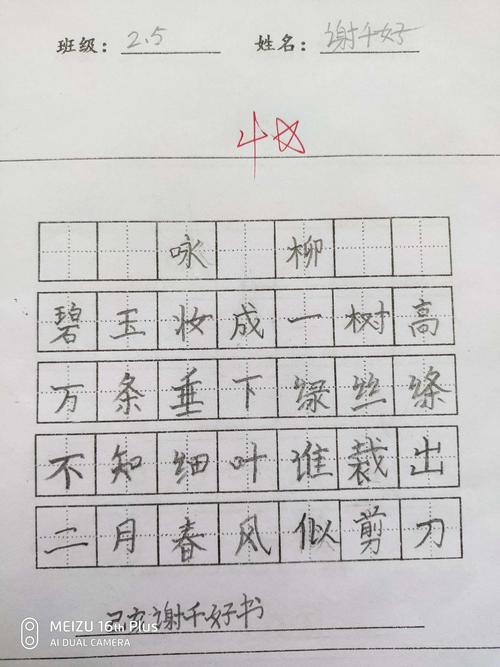 班级：2.5 姓名：谢千好
4☆
咏柳
碧玉妆成一树高
万条垂下绿丝绦
不知细叶谁裁出
二月春风似剪刀
己亥谢千好书
MEIZU 16th Plus
AI DUAL CAMERA